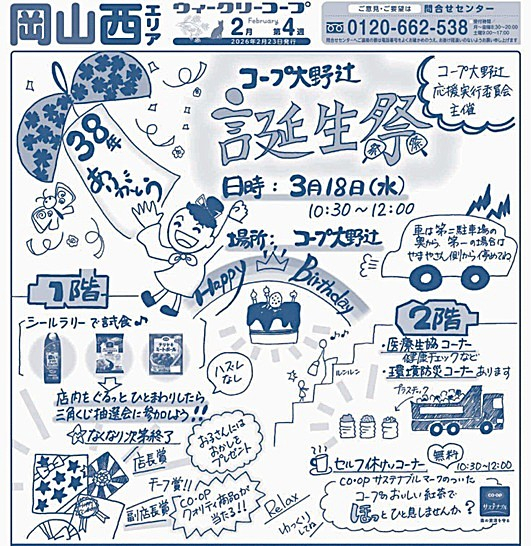 岡山西エリア
ウィークリーコープ
February
2月 第4週
2026年2月23日発行
ご意見・ご要望は 問合せセンター
0120-662-538
受付時間/
月~金曜8:30~20:00
土曜9:00~17:00
コープ大野辻
誕生祭
コープ大野辻
応援実行委員会
主催
38年
ありがとう
日時:3月18日(水)
10:30~12:00
場所:コープ大野辻
車は第二駐車場の
奥から 第一の場合は
やまやさん側から停めてね
Happy Birthday
1階
シールラリーで試食♪
店内をぐるっとひとまわりしたら
三角くじ抽選会に参加しよう!!
☆なくなり次第終了
ハズレ
なし
お子さんには
おかしを
プレゼント
店長賞
テープ賞!!
副店長賞
CO・OP
クオリティ商品が
当たる!!
Relax
ゆっくり
してね
ルンルン
2階
・医療生協コーナー
健康チェックなど
・環境防災コーナーあります
プラスチック
セルフ休けいコーナー
無料
10:30~12:00
CO・OP サステナブルマークのついた
コープのおいしい紅茶で
ほっとひと息しませんか?
CO・OP
サステナブル